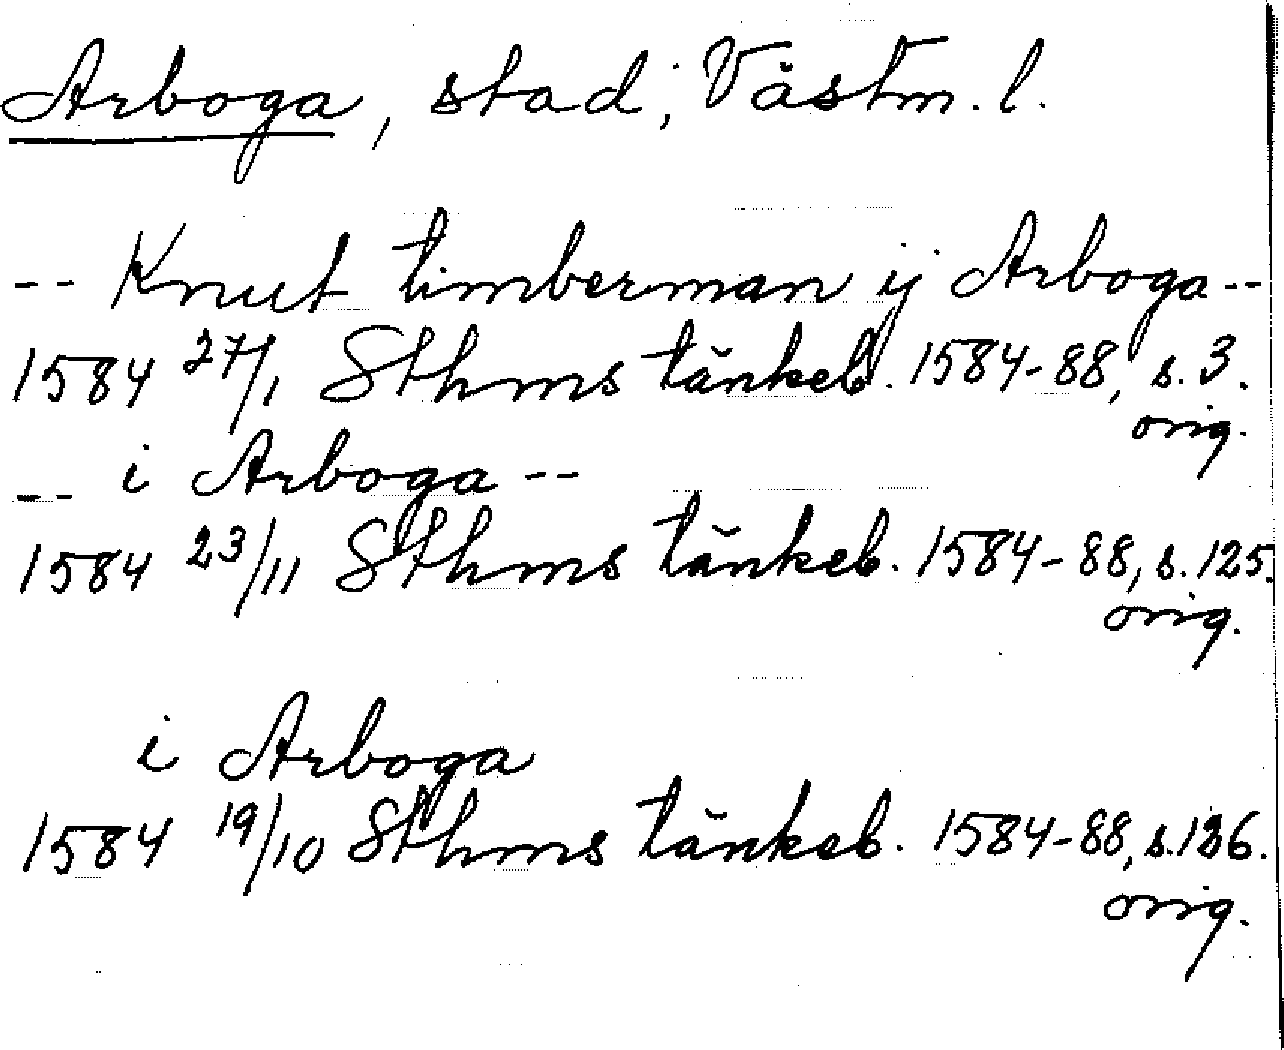 Arboga, stad, Västm. l.
-- Knut timberman ij Arboga --
1584 27/1 Sthms tänkeb. 1584-88, s. 3.
orig.
-- i Arboga --
1584 23/11 Sthms tänkeb. 1584-88, s. 125.
orig.
i Arboga
1584 19/10 Sthms tänkeb. 1584-88, s.
orig.